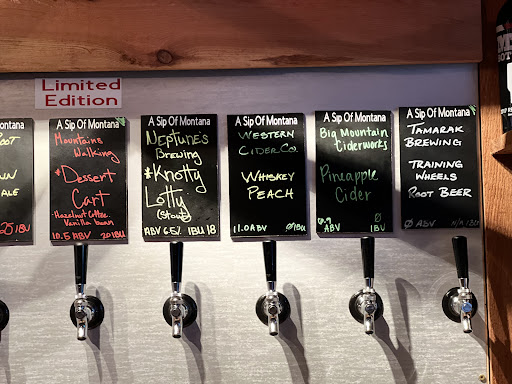 Limited
Edition
ontana
OOT
WN
ALE
25 IBU
A Sip Of Montana
Mountains
Walking
*Dessert
Cart
-Hazelnut Coffee
Vanilla bean
10.5 ABV 20 IBU
A Sip Of Montana
Neptune's
Brewing
*Knotty
Lotty
(Stout)
ABV 6.5% IBU 18
A Sip Of Montana
Western
Cider Co.
Whiskey
Peach
11.0 ABV Ø IBU
A Sip Of Montana
Big Mountain
Ciderworks
Pineapple
Cider
6.9 Ø
ABV IBU
A Sip Of Montana
Tamarak
Brewing
Training
Wheels
Root Beer
Ø ABV N/A IBU